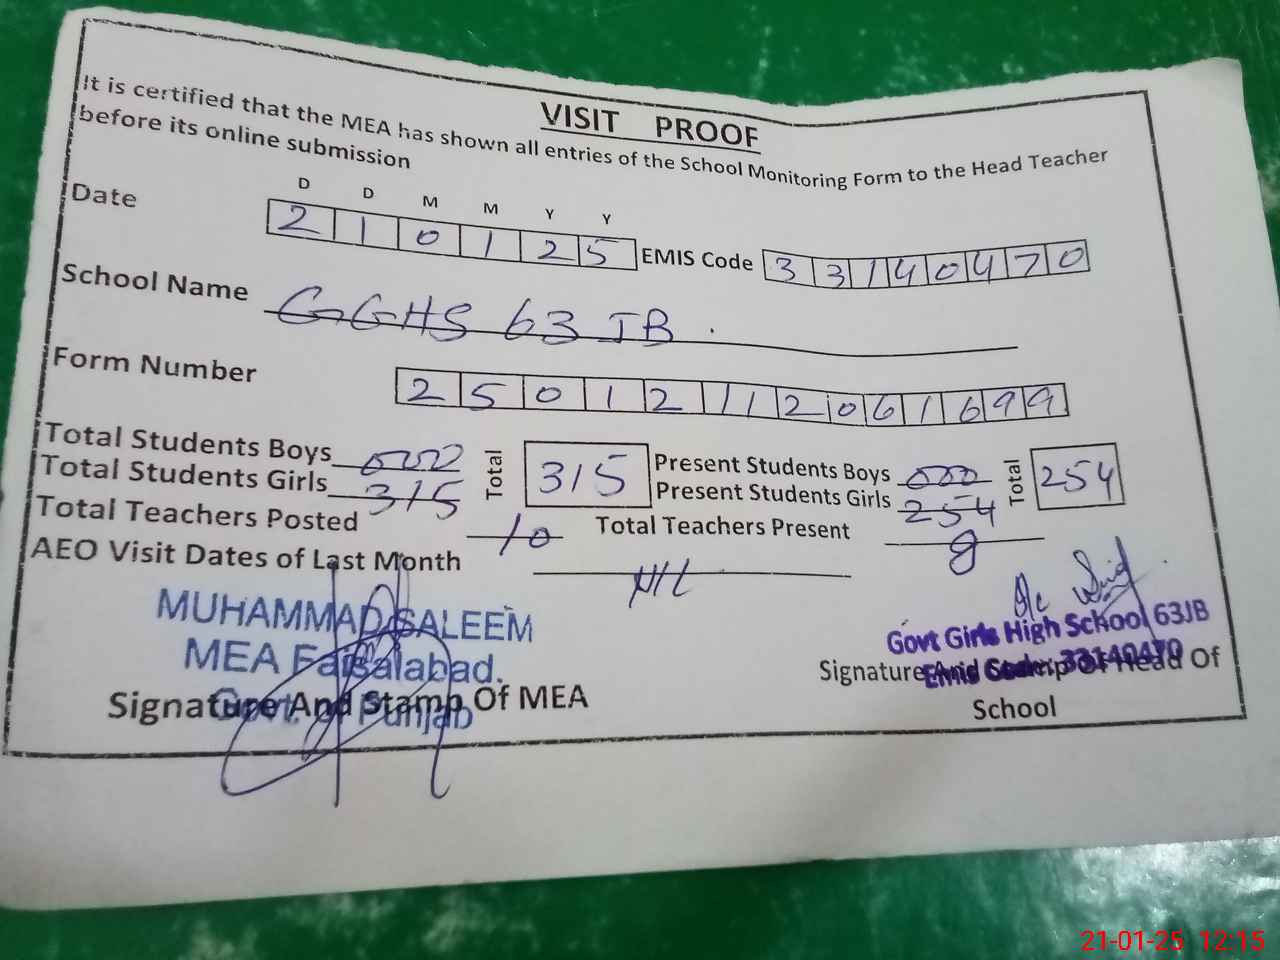 VISIT PROOF
It is certified that the MEA has shown all entries of the School Monitoring Form to the Head Teacher
before its online submission
D D M M Y Y
Date 2 1 0 1 2 5 EMIS Code 3 3 1 4 0 4 7 0
School Name GGHS 63 JB .
Form Number 2 5 0 1 2 1 1 2 0 6 1 6 9 9
Total Students Boys 000 Total 315 Present Students Boys 000 Total 254
Total Students Girls 315 Present Students Girls 254
Total Teachers Posted 10 Total Teachers Present 8
AEO Visit Dates of Last Month NIL
MUHAMMAD SALEEM
MEA Faisalabad.
Govt. of Punjab
Signature And Stamp Of MEA
Govt Girls High School 63JB
Emis Code: 33140470
Signature And Stamp Of Head Of
School
21-01-25 12:15